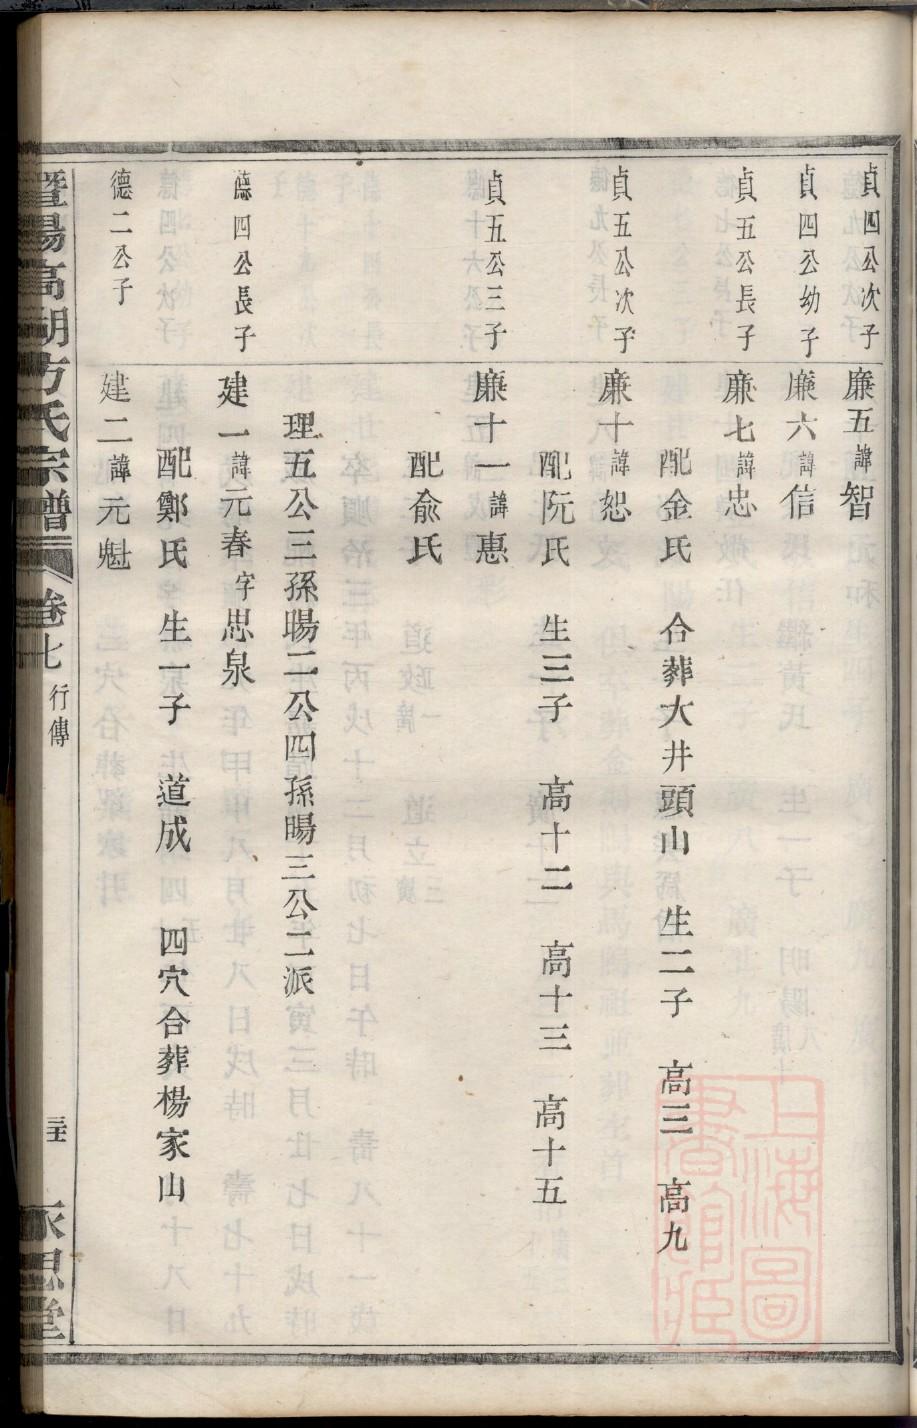 貞四公次子 廉五諱智
貞四公幼子 廉六諱信
貞五公長子 廉七諱忠
配金氏 合葬大井頭山 生二子 高三 高九
貞五公次子 廉十諱恕
配阮氏 生三子 高十二 高十三 高十五
貞五公三子 廉十一諱惠
配俞氏
理五公三孫暘二公四孫暘三公二派
德四公長子 建一諱元春字思泉
配鄭氏 生一子 道成 四穴合葬楊家山
德二公子 建二諱元魁
暨陽高湖方氏宗譜 卷七 行傳 永思堂
上海圖書館藏